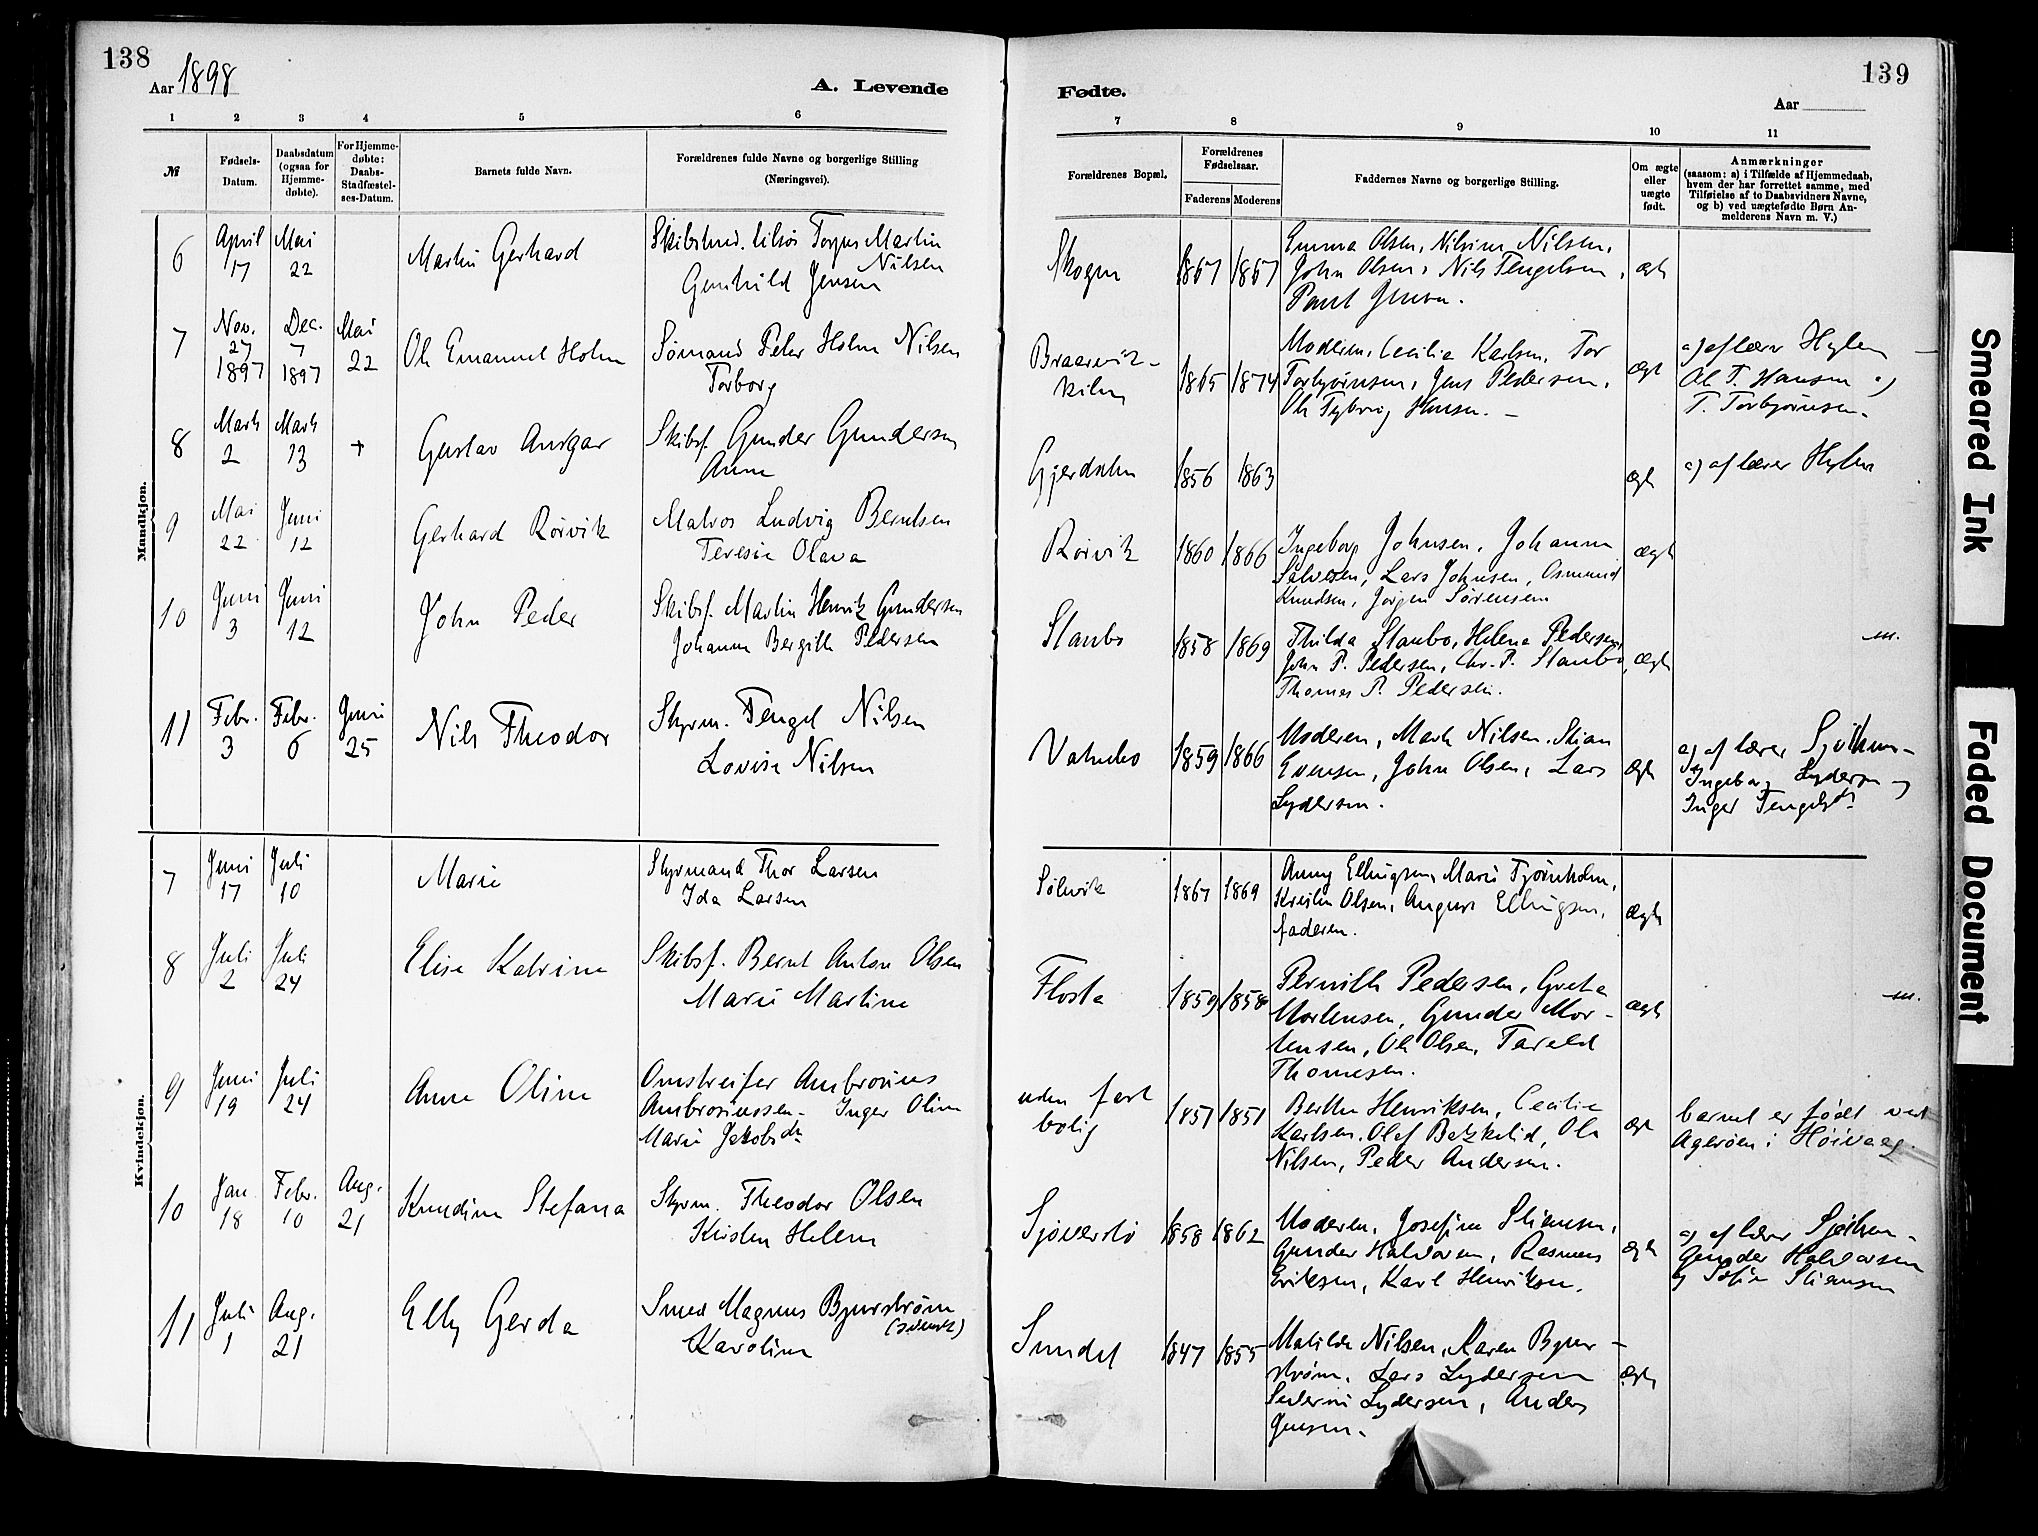 138
Aar 1898
A. Levende
1 2 3 4 5 6
№
Fødsels-
Datum.
Daabsdatum
(ogsaa for
Hjemme-
døbte).
For Hjemme-
døbte:
Daabs-
Stadfæstel-
ses-Datum.
Barnets fulde Navn.
Forældrenes fulde Navne og borgerlige Stilling
(Næringsvei).
Mandkjøn.
6 April 17 Mai 22 Martin Gerhard
Martin
Nilsen
Gunhild Jensen
7 Nov. 27 1897 Dec. 7 1897 Mai 22 Ole Emanuel Holm
Sømand Peter Holm Nilsen
Torborg
8 Marts 2 Marts 13 + Gustav Ansgar
Skibsf. Gunder Gundersen
Anne
9 Mai 22 Juni 12 Gerhard Rørvik
Matros Ludvig Berntsen
Teresie Olava
10 Juni 3 Juni 12 John Peder
Skibsf. Martin Henrik Gundersen
Johanne Bergitte Pedersen
11 Febr. 3 Febr. 6 Juni 25 Nils Theodor
Styrm. Tengel Nilsen
Lovise Nilsen
Kvindekjøn.
7 Juni 17 Juli 10 Marie
Styrmand Thor Larsen
Ida Larsen
8 Juli 2 Juli 24 Elise Katrine
Skibsf. Bernt Anton Olsen
Marie Martine
9 Juni 19 Juli 24 Anne Oline
Omstreifer Ambrosius
Ambrosiussen - Inger Oline
Marie Jakobsdtr
10 Jan. 18 Febr. 10 Aug. 21 Knudine Stefana
Styrm. Theodor Olsen
Kirsten Helene
11 Juli 1 Aug. 21 Elly Gerda
Smed Magnus Bjurstrøm
(svensk)
Karoline
139
Fødte.
Aar
7 8 9 10 11
Forældrenes Bopæl.
Forældrenes
Fødselsaar.
Faderens Moderens
Faddernes Navne og borgerlige Stilling.
Om ægte
eller
uægte
født.
Anmærkninger
(saasom: a) i Tilfælde af Hjemmedaab,
hvem der har forrettet samme, med
Tilføielse af to Daabsvidners Navne,
og b) ved uægtefødte Børn An-
melderens Navn m. V.)
Skogen 1867 1867
Emma Olsen, Nilsine Nilsen,
John Olsen, Nils Tengelsen,
Paul Jensen.
ægte
Braarvik-
kilen
1865 1874
Moderen, Cecilie Karlsen, Tor
Torbjørnsen, Jens Pedersen,
Ole Hansen. -
ægte
a) af lærer Hylen -
Ole T. Hansen og
T. Torbjørnsen.
1856 1863 ægte
a) af lærer Hylen
Rørvik 1860 1866
Ingeborg Johnsen, Johanne
Salvesen, Lars Johnsen, Osmund
Knudsen, Jørgen Sørensen
ægte
Staubø 1858 1869
Thilda Staubo, Helene Pedersen,
John P. Pedersen, Chr. P. Staubo,
Thomas P. Pedersen.
ægte
Vatnebo 1859 1866
Moderen, Marte Nilsen, Stian
Evensen, John Olsen, Lars
Lydersen.
ægte
a) af lærer
Ingeborg Lydersen og
Inger Tengelsdtr
Sølevik 1867 1869
Anny Ellingsen, Marie Tjørnholm,
Kristen Olsen, August Ellingsen,
faderen.
ægte
Flosta 1859 1858
Pernille Pedersen, Grete
Mortensen, Gunder Mor-
tensen, Ole Olsen, Tarald
Thomesen.
ægte
uden fast
bolig
1857 1851
Berthe Henriksen, Cecilie
Karlsen, Olaf Ole
Nilsen, Peder Andersen.
ægte
barnet er født ved
Agerøen i Høivaag.
1858 1862
Moderen, Josefine Stiansen,
Gunder Halvorsen, Rasmus
Eriksen, Karl Henriksen.
ægte
a) af lærer
Gunder Halvorsen
og Sofie Stiansen
Sundet 1847 1855
Matilde Nilsen, Karen Bjur-
strøm, Lars Lydersen
Severine Lydersen, Anders
Jensen.
ægte
Smeared Ink
Faded Document